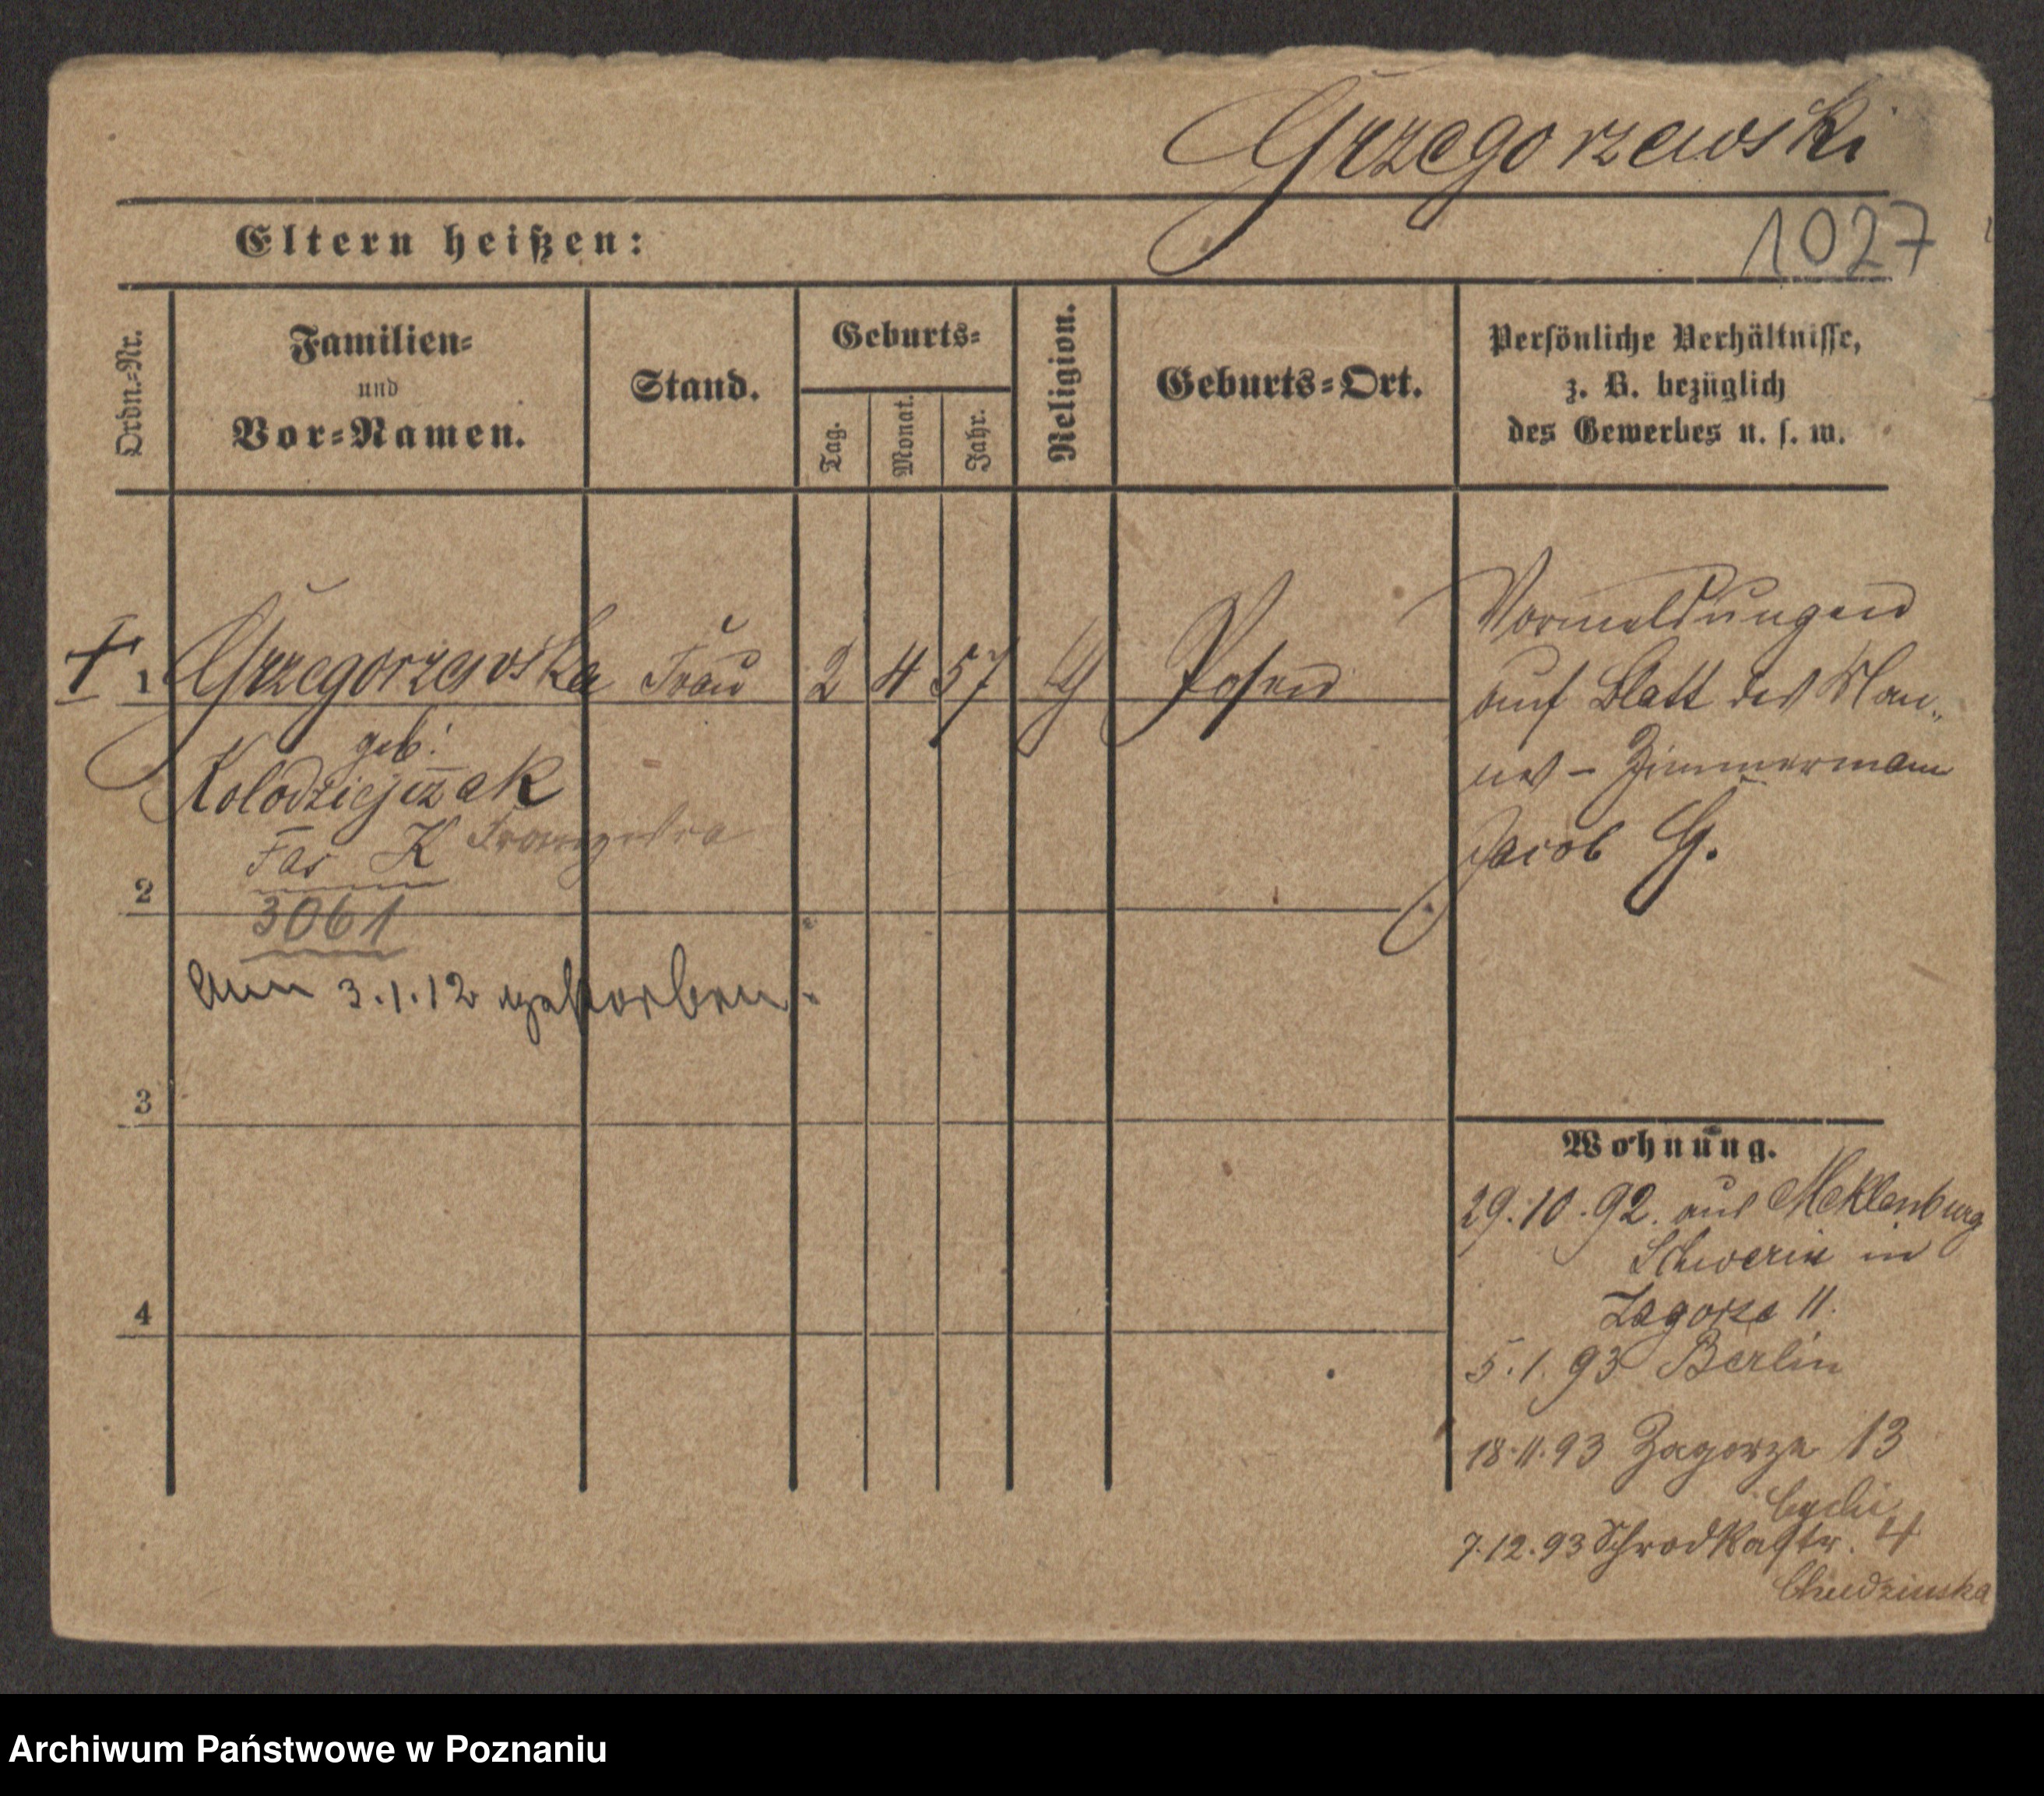 Grzegorzewski
1027
Eltern heißen:
Ordn.=Nr.
Familien=
und
Vor=Namen.
Stand.
Geburts=
Tag.
Monat.
Jahr.
Religion.
Geburts=Ort.
Persönliche Verhältnisse,
z. B. bezüglich
des Gewerbes u. s. w.
† 1 Grzegorzewska Frau 2 4 57 Posen
geb.
Kolodziejczak
Franziska
Fas K
3061
am 3.1.12 gestorben.
2
3
4
Vormeldungen
auf Blatt des Man„
nes – Zimmermann
Jacob G.
Wohnung.
29.10.92. aus Meklenburg
Schwerin in
Zagorze 11.
5.1.93 Berlin
18.11.93 Zagorze 13
7.12.93 Schrodkastr. 4
Chudzinska
Archiwum Państwowe w Poznaniu